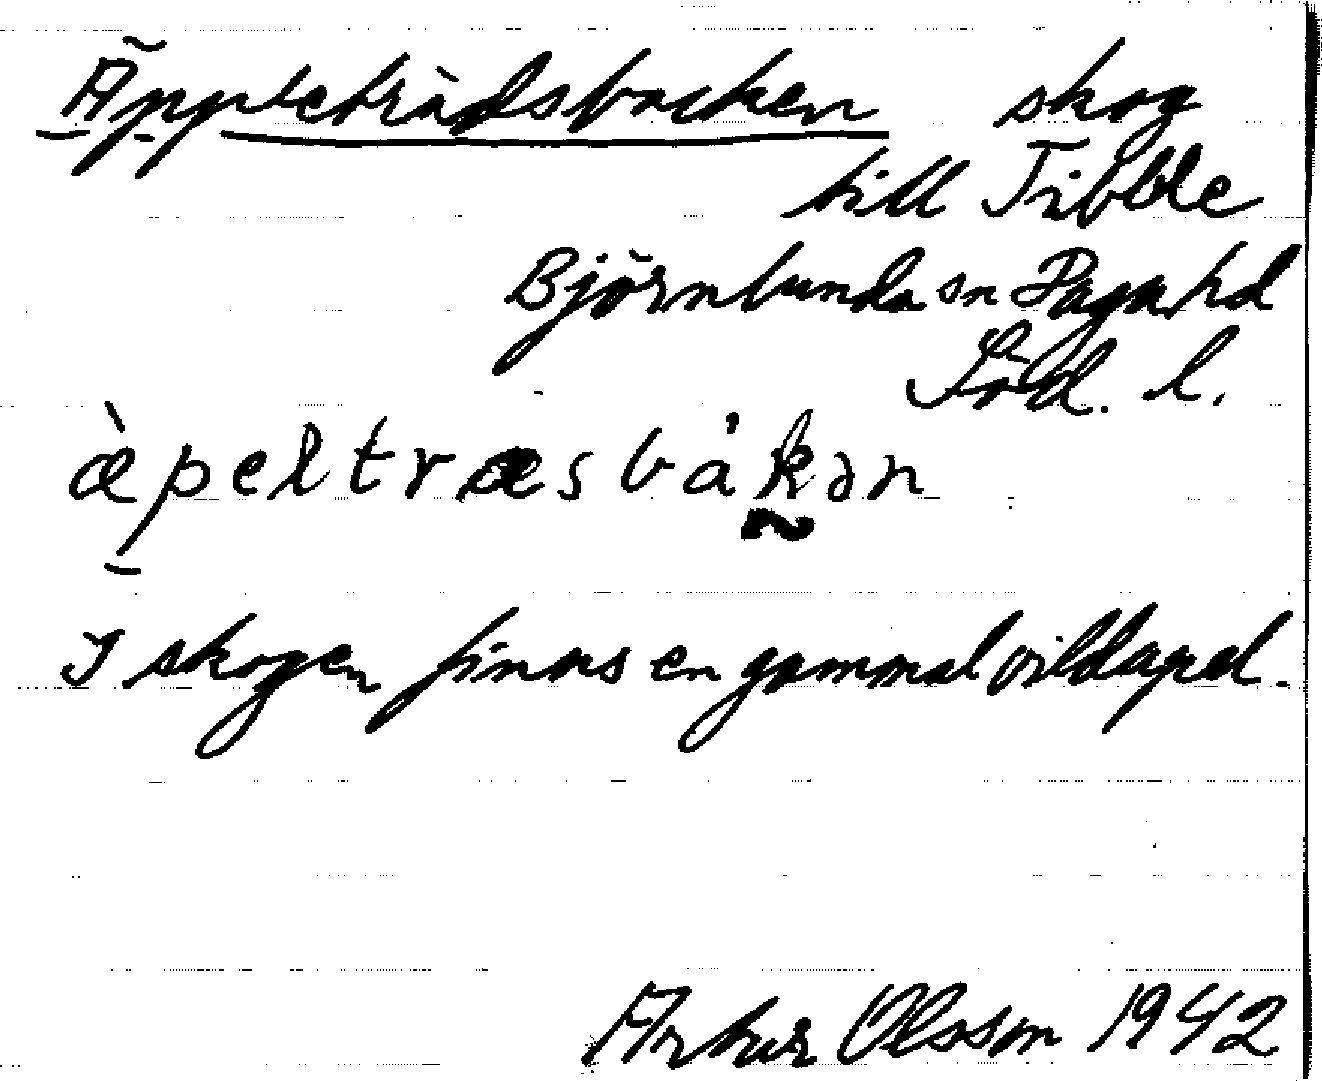 Äppleträdsbacken skog
till Tibble
Björnlunda sn Daga hd
Söd. l.
æ̀peltræsbákən
I skogen finns en gammal vildapel.
Arthur Olsson 1942